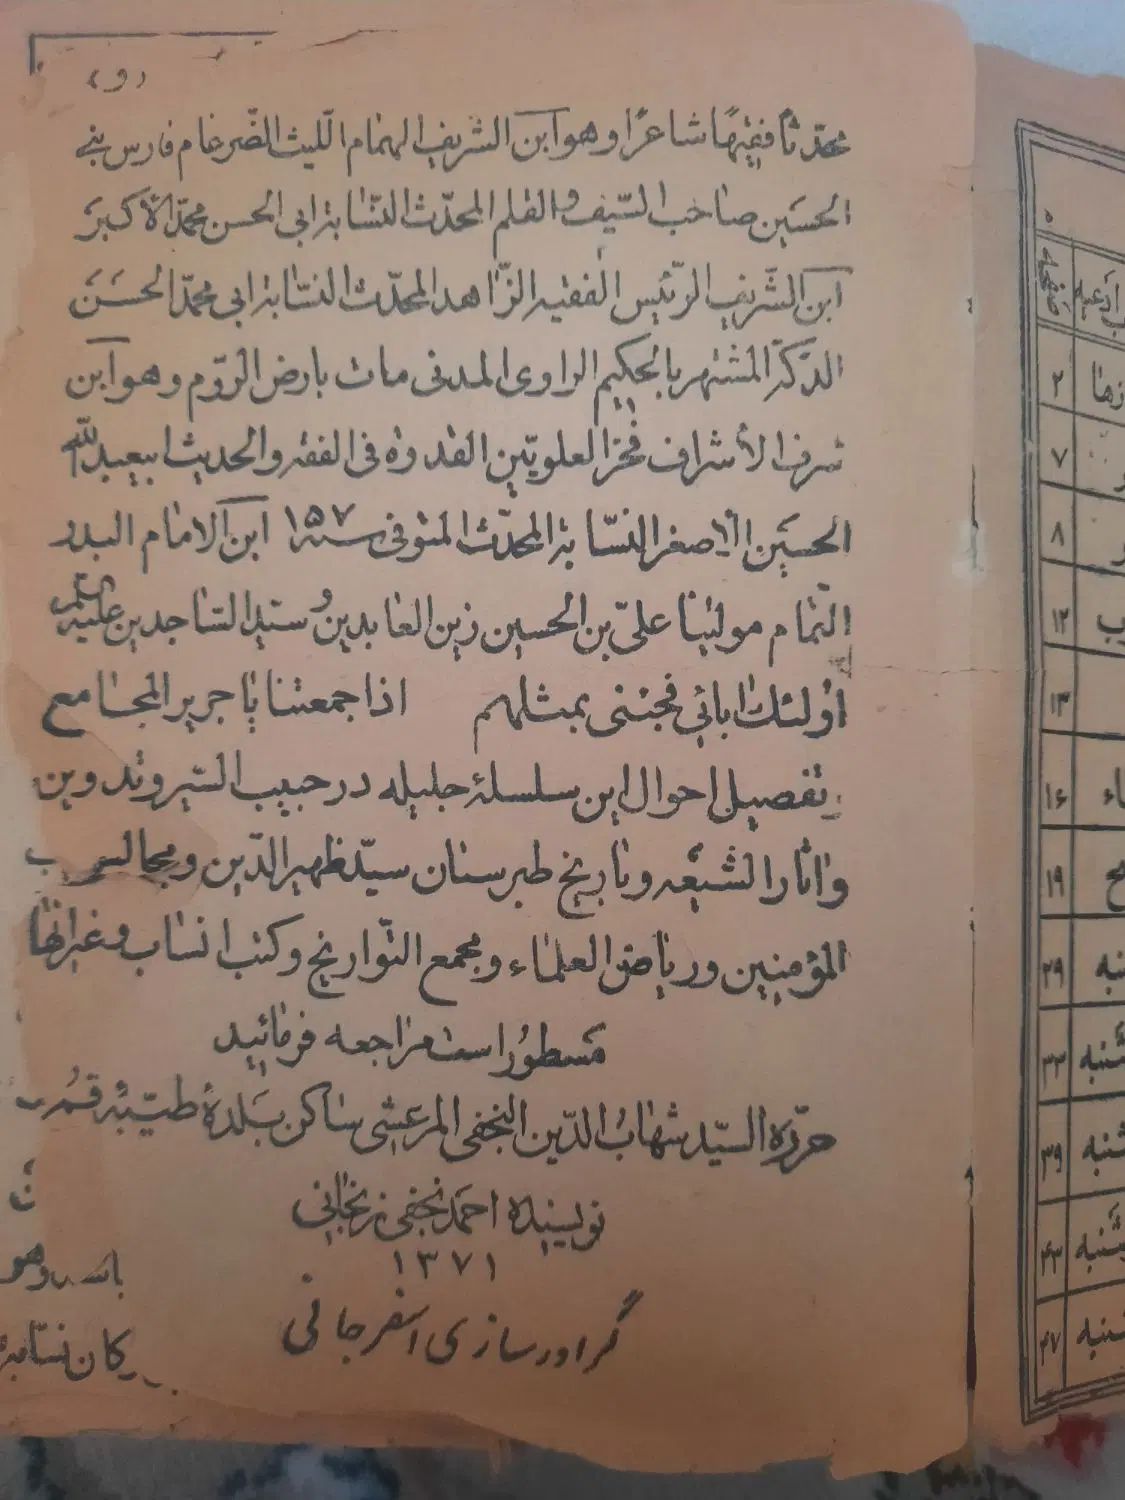 (و)
محدّثا فقيهًا شاعرًا وهو ابن الشّريف الهمام اللّيث الضّرغام فارس بني
الحسَين صاحب السّيف والقلم المحدّث النسّابة ابی الحسن محمّد الأكبَر
ابن الشَّريف الرّئيس الفقيه الزّاهد المحدّث النسّابة ابی محمّد الحسَن
الدّكّة المشتهر بالحكيم الراوی المدنی مات بارض الرّوم وهو ابن
شرف الأشراف فخر العلويّين القدوة فی الفقه والحديث ابيعبدالله
الحسَين الأصغر النسّابة المحدّث المتوفی سنه ۱۵۷ ابن الامام البدر
التّمام مولينا علیّ بن الحسين زين العابدين و سيّد السّاجدين عليه السّلم
اولئك ابائي فجئنی بمثلهم اذا جمعتنا يا جرير المجامع
تفصيل احوال اين سلسلۀ جليله در حبيب السّير وتدوين
واثار الشّيعه وتاريخ طبرستان سيّد ظهير الدّين ومجالس
المؤمنين ورياض العلماء ومجمع التّواريخ وكتب انساب وغيرانها
مَسطور است مراجعه فرمائيد
حرّره السيّد شهاب الدّين النجفی المرعشی ساكن بَلدۀ طيّبۀ قم
نويسنده احمد نجفی زنجانی
۱۳۷۱
گراورسازی اسفرجانی
وهو
كان نسّابة
صفحه
۲
۷
۸
۱۲
۱۳
۱۶
۱۹
۲۹
۳۳
۳۹
۴۳
۴۷